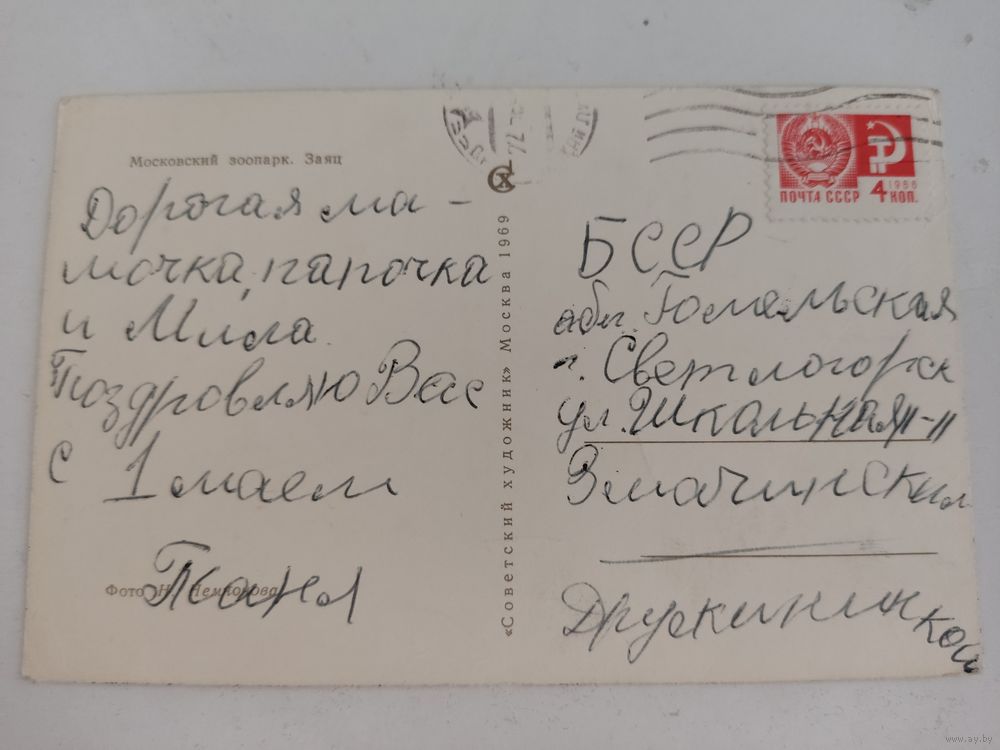 Московский зоопарк. Заяц
Дорогая ма-
мочка, папочка
и Мила.
Поздровляю Вас
с 1 маем
Таня
Фото Н. Немнонова
«Советский художник» Москва 1969
72
ПОЧТА СССР 4 КОП.
1966
БССР
обл. Гомельская
г. Светлогорск
ул. Школьная 11-11
Змачинским
www.ay.by